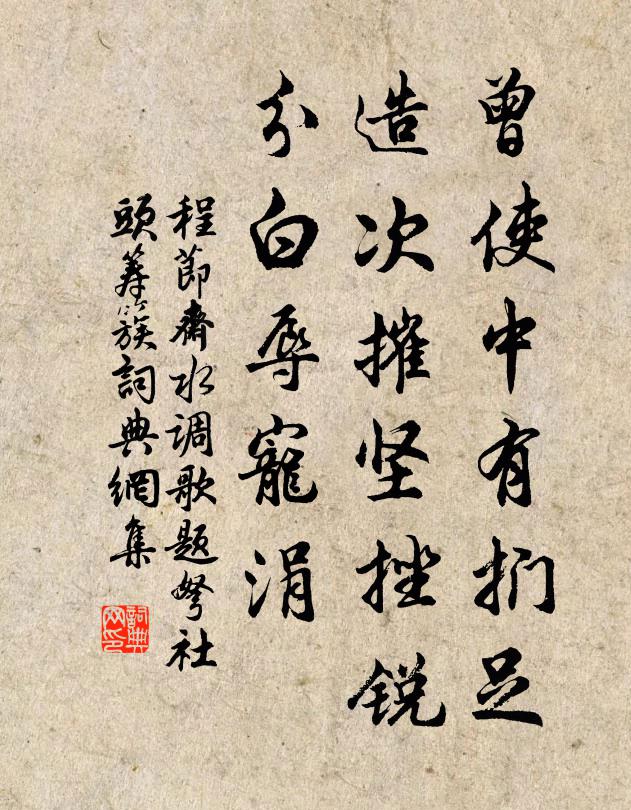 曾使中有扪足
造次摧坚挫锐
分白辱寵涓
程節齋水調歌題弩社
頭籌簇詞典網集
詞典网印